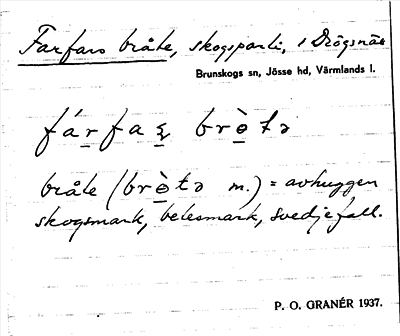 Farfars bråte, skogsparti, i Drögsnäs
Brunskogs sn, Jösse hd, Värmlands l.
bråte ( m.) = avhuggen
skogsmark, betesmark, svedjefall.
P. O. GRANÉR 1937.